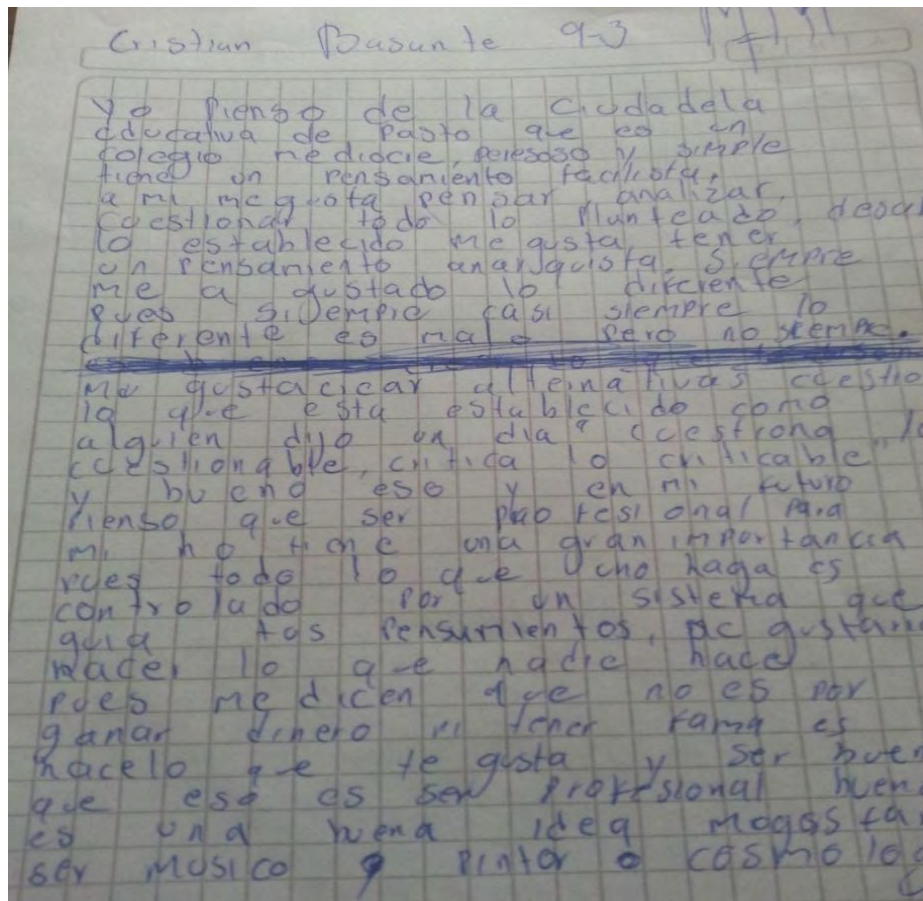 Cristian Basante 9-3
Yo Pienso de la Ciudadela
educativa de Pasto que es un
colegio mediocre, peresoso y simple
tiene un pensamiento facilista,
a mi me gusta pensar, analizar,
cuestionar todo lo planteado,
lo establecido me gusta tener
un pensamiento anarquista. Siempre
me a gustado lo diferente
pues siempre casi siempre lo
diferente es malo pero no siempre.
me gusta crear alternativas
lo que esta establecido como
alguien dijo un dia "
cuestionable, critica lo criticable"
y bueno eso y en mi futuro
Pienso que ser profesional para
mi no tiene una gran importancia
pues todo lo que uno haga es
controlado por un sistema que
guia tus pensamientos, me gustaria
hacer lo que nadie hace
pues me dicen que no es por
ganar dinero ni tener fama es
hacelo que te gusta y ser
que eso es ser profesional
es una buena idea
ser musico pintor o